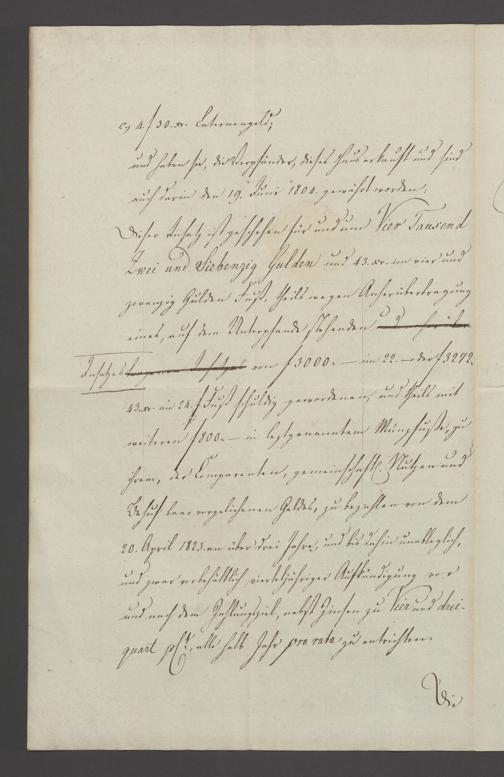 c, 4 f 30. xr. Laternengeld;
und haben sie, die Verpfänder, dieses Haus erkauft und sind
auch darin den 19. Juni 1804. gewährt worden.
Dieser Ansatz ist geschehen für und um Vier Tausend
Zwei und Siebenzig Gulden und 43. xr. im vier und
zwanzig Gulden Fuß, theils wegen Anherübertragung
eines, auf dem Unterpfande stehenden
Ansatzes von f 3000. — im 22. — oder f 3272.
43. xr. im 24. f Fuß schuldig gewordenen, und theils mit
weiteren f 800. — in letztgenanntem Münzfuße, zu
ihrem, der Comparenten, gemeinschaftl. Nutzen und
Behuf baar vorgeliehenen Geldes, zu bezahlen von dem
20. April 1823. an über drei Jahre, und bis dahin unableglich,
und zwar vorbehältlich vierteljähriger Aufkündigung vor
und nach dem Zahlungsziel, nebst Zinsen zu Vier und drei-
quart pCt., alle halb Jahr pro rata zu entrichten.
Die